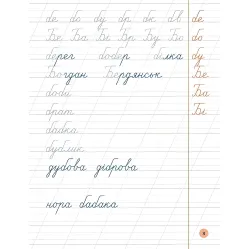 бе бо бу бр бе
Бе Ба Бе Бр Бу Бо бо
берег бобер білка бу
Богдан Бердянськ Бе
боби Ба
брат Бі
бабка
бублик
дубова діброва
нора бабака